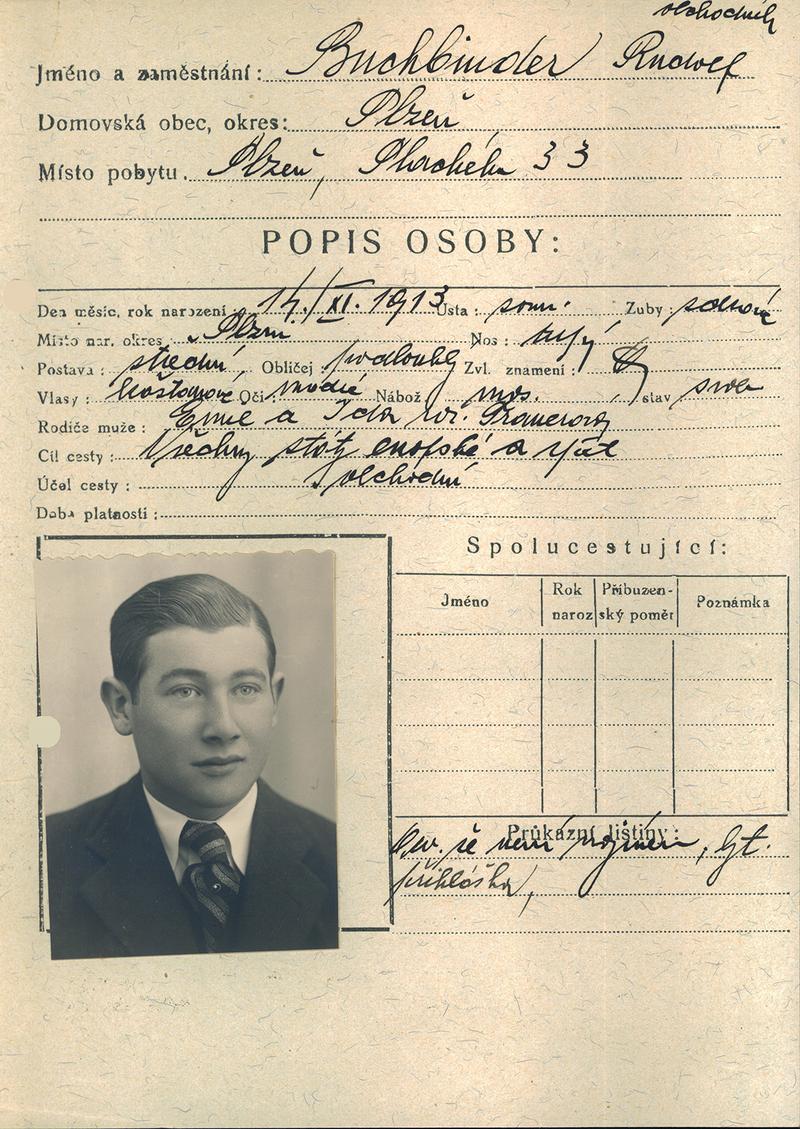 obchodník
Jméno a zaměstnání: Buchbinder Rudolf
Domovská obec, okres: Plzeň
Místo pobytu. Plzeň, Plachého 33
POPIS OSOBY:
Den měsíc, rok narození 14./XI. 1913 Ústa: soum. Zuby: zdravé
Místo nar. okres Plzeň Nos: tupý
Postava: střední Obličej podlouhlý Zvl. znamení:
Vlasy: kaštanové Oči modré Nábož. mos. stav svob
Rodiče muže: Emil a Ida roz.
Cíl cesty: Všechny státy evropské a
Účel cesty: obchodní
Doba platnosti:
Spolucestující:
Jméno Rok naroz Příbuzenský poměr Poznámka
Průkazní listiny:
že není, gt.
přihláška,